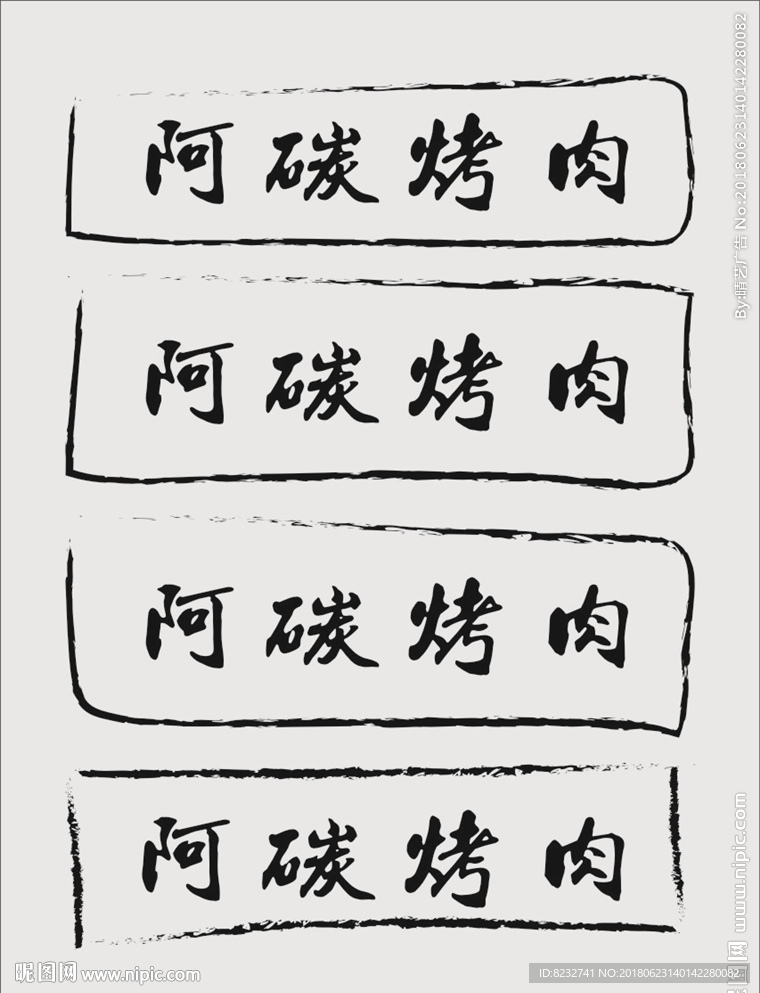 阿碳烤肉
阿碳烤肉
阿碳烤肉
阿碳烤肉
By:晴艺广告 No:20180623140142280082
昵图网 www.nipic.com
昵图网 www.nipic.com
ID:8232741 NO:20180623140142280082